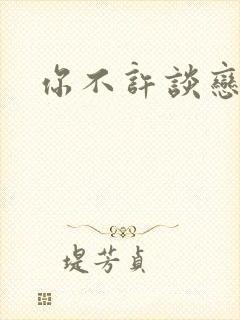 你不許談戀
堤芳貞